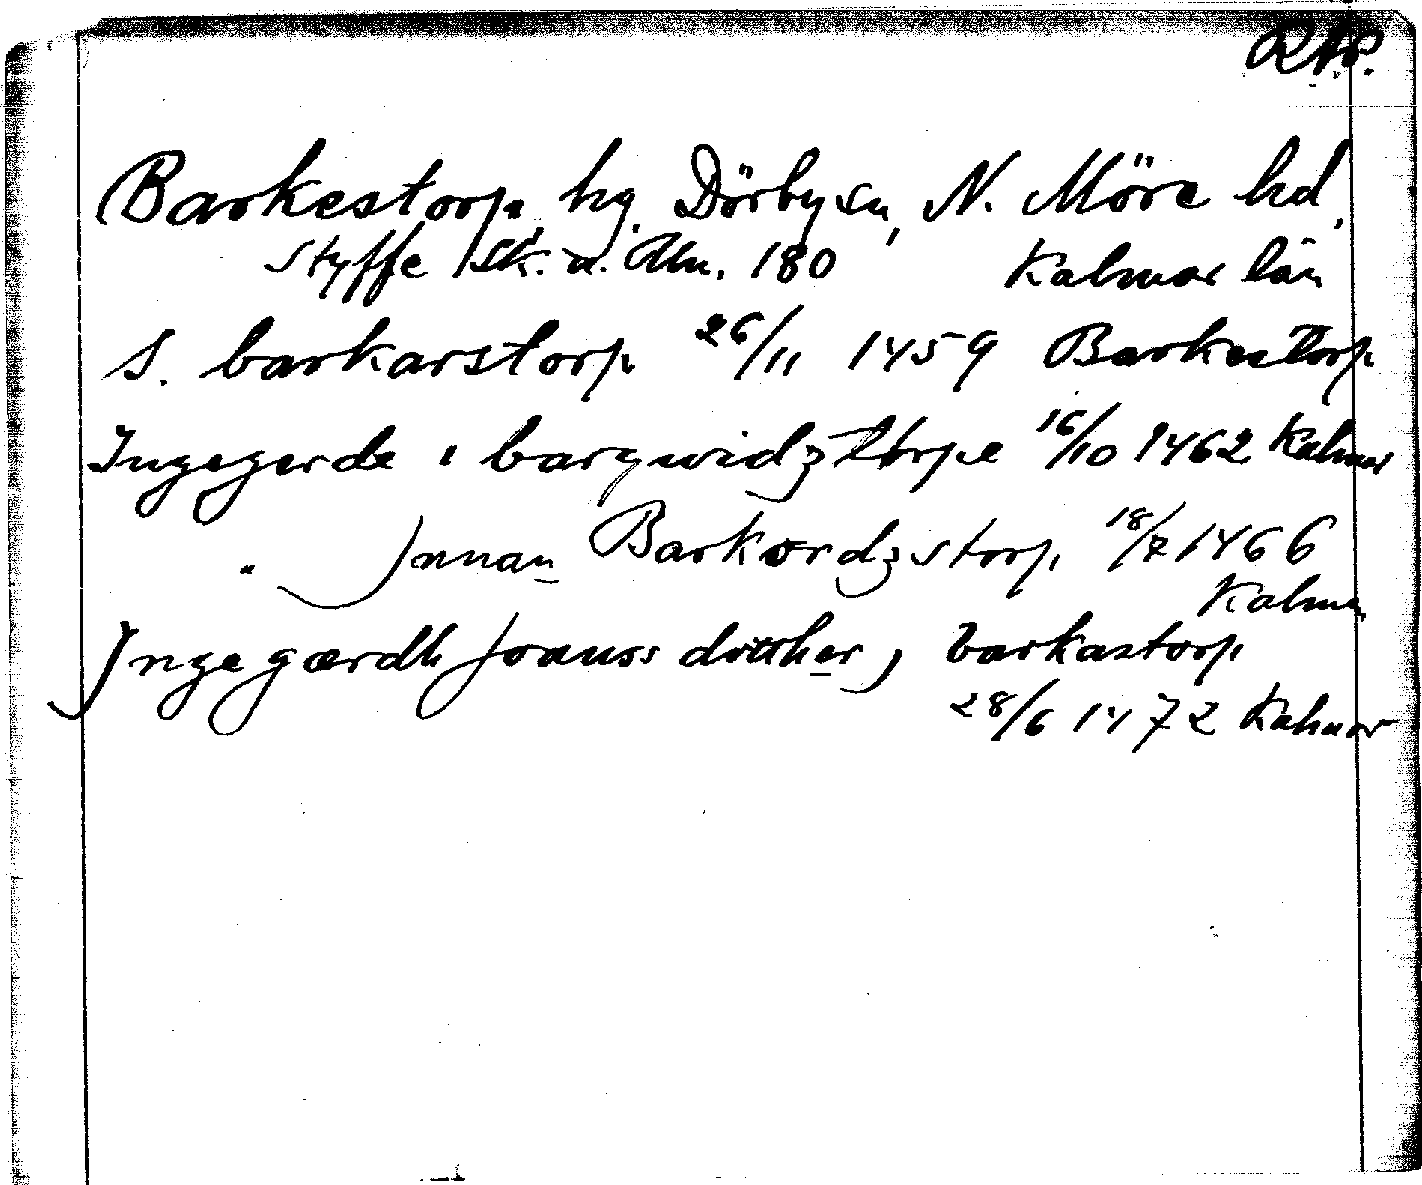 RAP.
Barkestorp, hg. Dörby sn, N. Möre hd,
Styffe Sk. u. Un. 180 Kalmar län
S. barkarstorp 26/11 1459 Barkestorp
Ingegerde i barqwidztorpe 16/10 1462 Kalmar
" Jnnan Barkordzstorp 18/7 1466
Kalmar
Jngegærdh Joanss dotther, barkastorp
28/6 1472 Kalmar